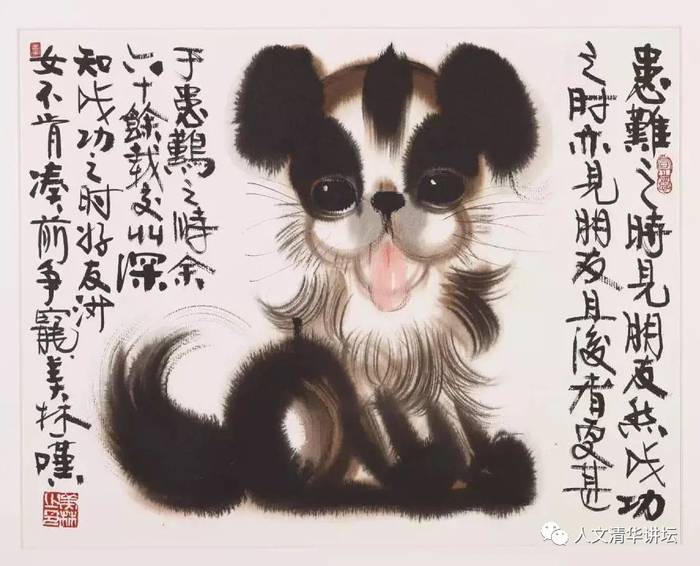 患難之時見朋友然成功
之时亦見朋友且後者更甚
于患難之時余
六十餘載交深
知成功之时好友
女不肯凑前争寵美林
美林之印
人文清华讲坛